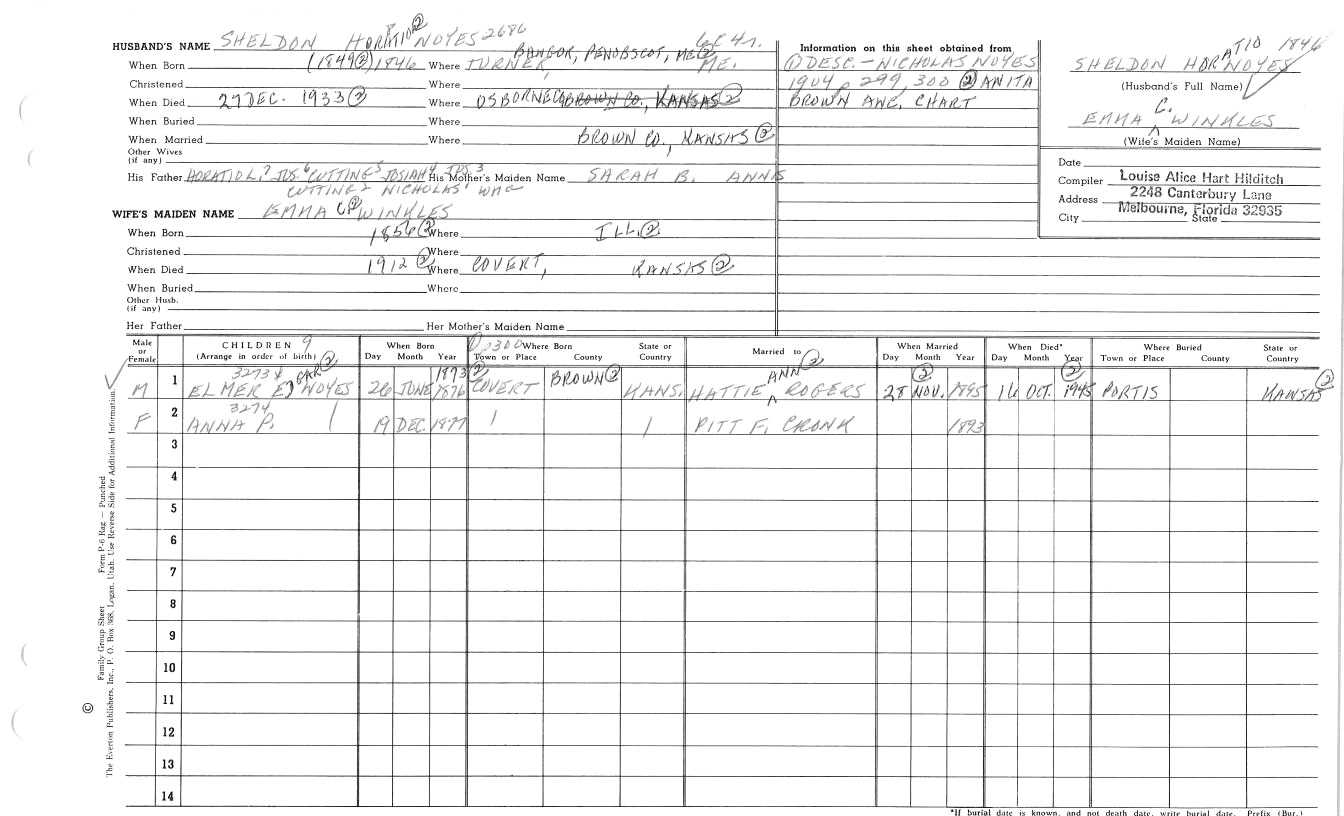 HUSBAND'S NAME SHELDON HORATIO ② NOYES 2686
When Born (1849 ②) 1846 Where TURNER, BANGOR, PENOBSCOT, ME ② ME.
Christened Where
When Died 27 DEC. 1933 ② Where OSBORNE CO. BROWN CO., KANSAS ②
When Buried Where
When Married Where BROWN CO., KANSAS ②
Other Wives
(if any)
His Father HORATIO L.7 JOS.6 CUTTING5 JOSIAH4 JOS.3 His Mother's Maiden Name SARAH B. ANNIS
CUTTING2 NICHOLAS1 WM
WIFE'S MAIDEN NAME EMMA C. ② WINKLES
When Born 1856 ② Where ILL. ②
Christened Where
When Died 1912 ② Where COVERT, KANSAS ②
When Buried Where
Other Husb.
(if any)
Her Father Her Mother's Maiden Name
Information on this sheet obtained from
① DESC. - NICHOLAS NOYES
1904 p 299, 300 ② ANITA
BROWN ANC. CHART
SHELDON HORATIO NOYES 1846
(Husband's Full Name)
EMMA C. WINKLES
(Wife's Maiden Name)
Date
Compiler Louise Alice Hart Hilditch
Address 2248 Canterbury Lane
City Melbourne, Florida 32935 State
Male or Female
CHILDREN 9
(Arrange in order of birth)
When Born
Day Month Year
p 300 Where Born
Town or Place County State or Country
Married to
When Married
Day Month Year
When Died*
Day Month Year
Where Buried
Town or Place County State or Country
M 1 3273 ELMER EDGAR ② NOYES 26 JUNE 1873 ② 1876 COVERT BROWN ② KANS. HATTIE ANN ② ROGERS 28 NOV. ② 1895 16 OCT. 1945 ② PORTIS KANSAS ②
F 2 3274 ANNA P. 19 DEC 1877 PITT F. CRONK 1893
3
4
5
6
7
8
9
10
11
12
13
14
© Family Group Sheet Form P-6 Rag — Punched
The Everton Publishers, Inc., P. O. Box 368, Logan, Utah. Use Reverse Side for Additional Information.
*If burial date is known, and not death date, write burial date. Prefix (Bur.)